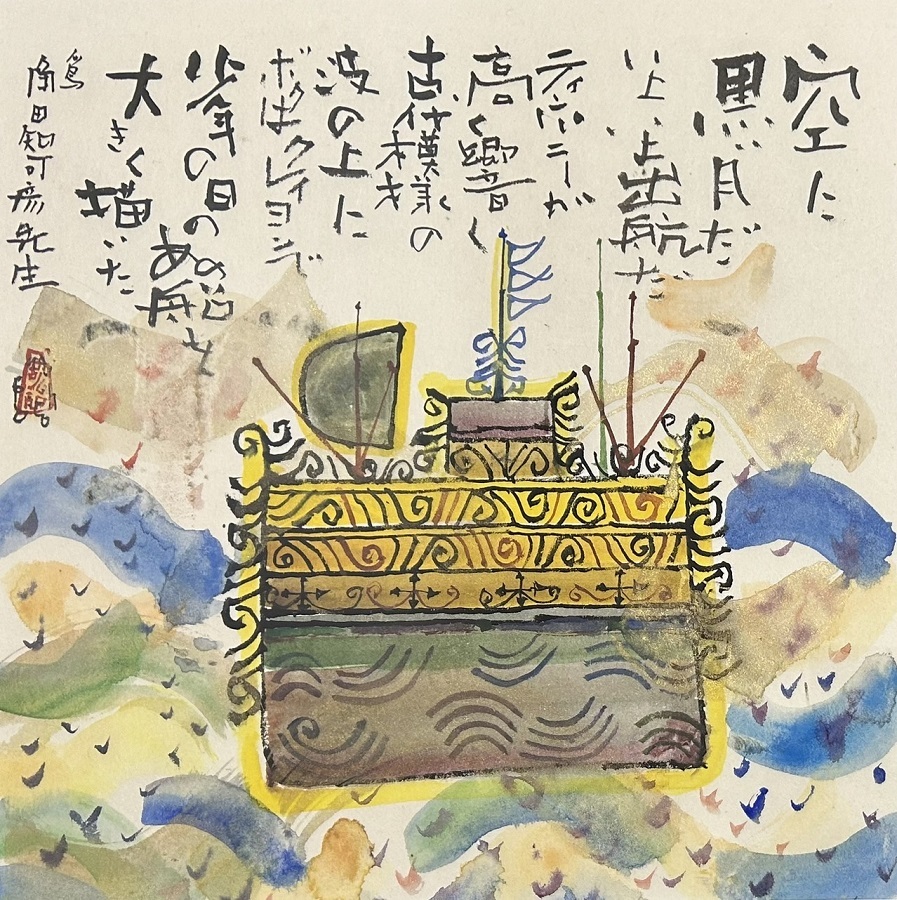 空に
黒月だ
いよいよ出航だ
ティンパニーが
高く響く
古代模様の
波の上に
ボクはクレイヨンで
少年の日のあの船を
大きく描いた
為
南田知可彦先生